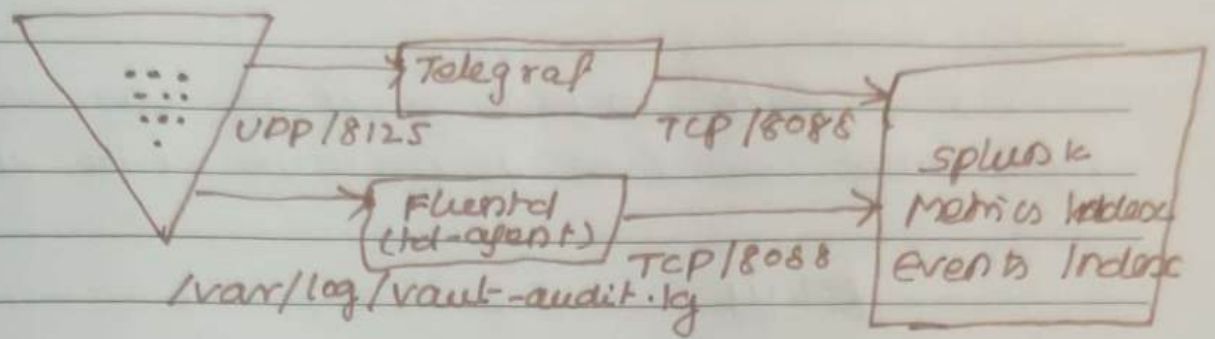 Telegraf
UDP/8125
TCP/8088
Fluentd
(td-agent)
TCP/8088
/var/log/vault-audit.lg
splunk
Metrics Index
events Index